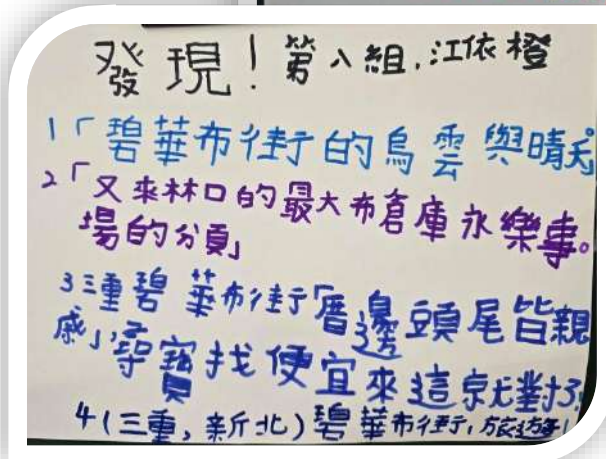 發現!第八組.江依橙
1「碧華布街的烏雲與晴天。
2「又來林口的最大布倉庫永樂專。
場的分頁」
3三重碧華布街「厝邊頭尾皆親
戚」,尋寶找便宜來這就對了
4(三重,新北)碧華布街,旅遊